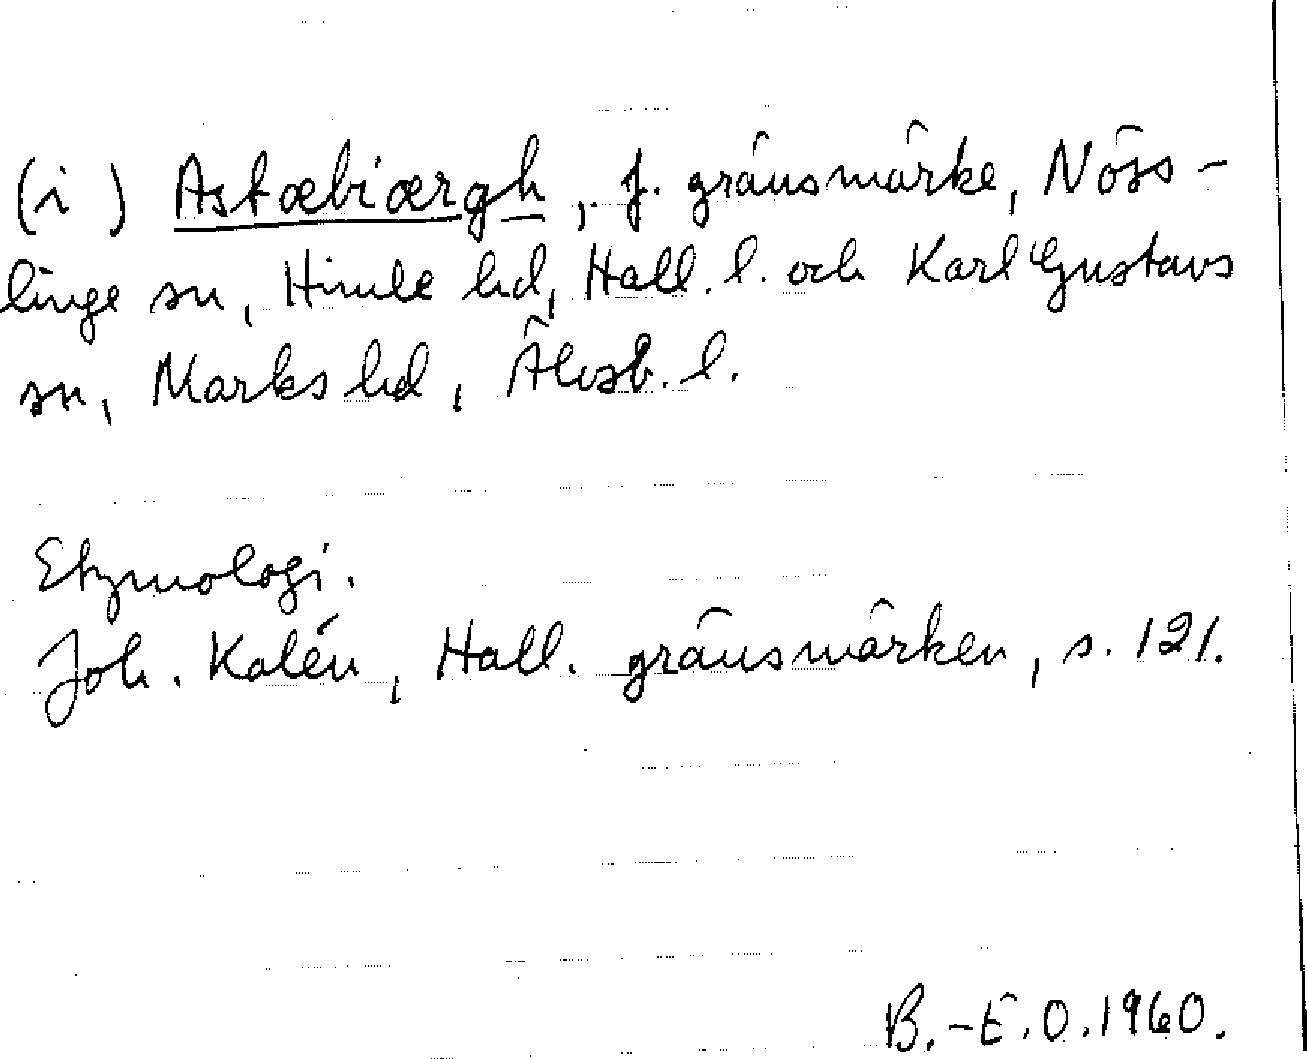 (i) Astæbiærgh, f. gränsmärke, Nöss-
linge sn, Himle hd, Hall. l. och Karl Gustavs
sn, Marks hd, Älvsb. l.
Etymologi.
Joh. Kalén, Hall. gränsmärken, s. 121.
B.-E.O.1960.